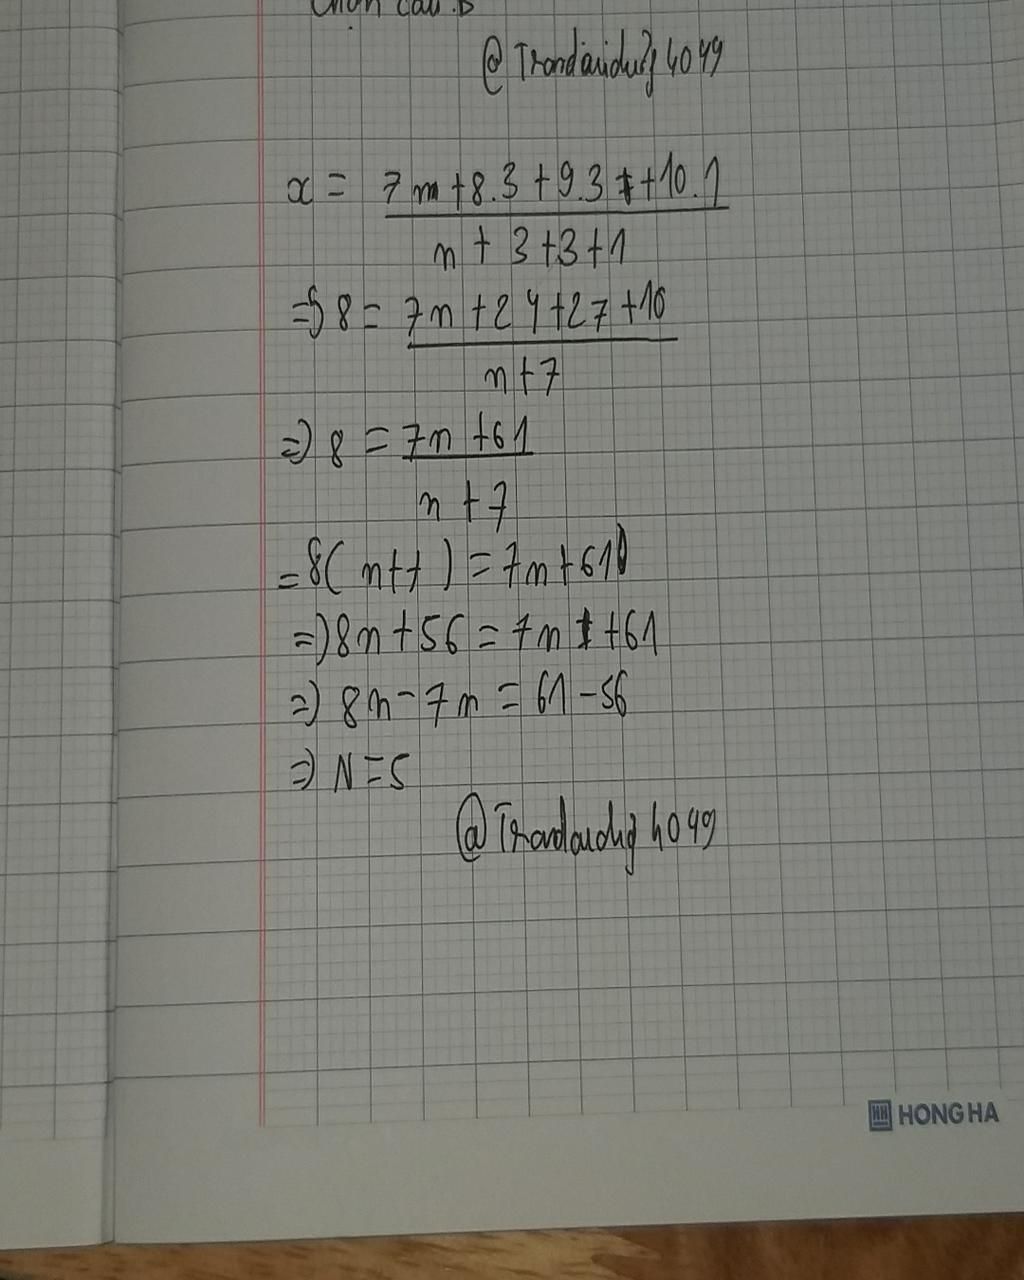 Chọn câu B
@Trandaiduzg 4049
x = 7n + 8.3 + 9.3 + 10.1
n + 3 + 3 + 1
=> 8 = 7n + 24 + 27 + 10
n + 7
=> 8 = 7n + 61
n + 7
= 8( n + 7 ) = 7n + 61
=> 8n + 56 = 7n + 61
=> 8n - 7n = 61 - 56
=> N = 5
4049
HONG HA